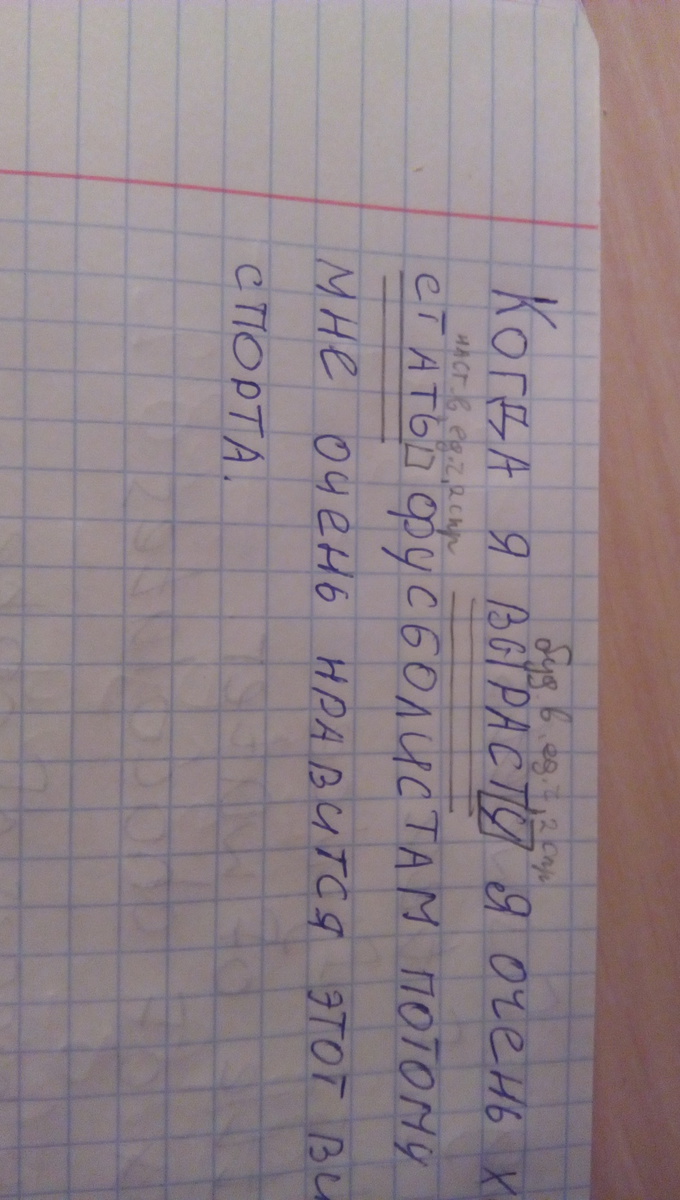 буд. в. ед. ч, 2 спр
Когда я вырасту я очень х
наст. в. ед. ч, 2 спр
стать фусболистам потому
мне очень нравится этот ви
спорта.